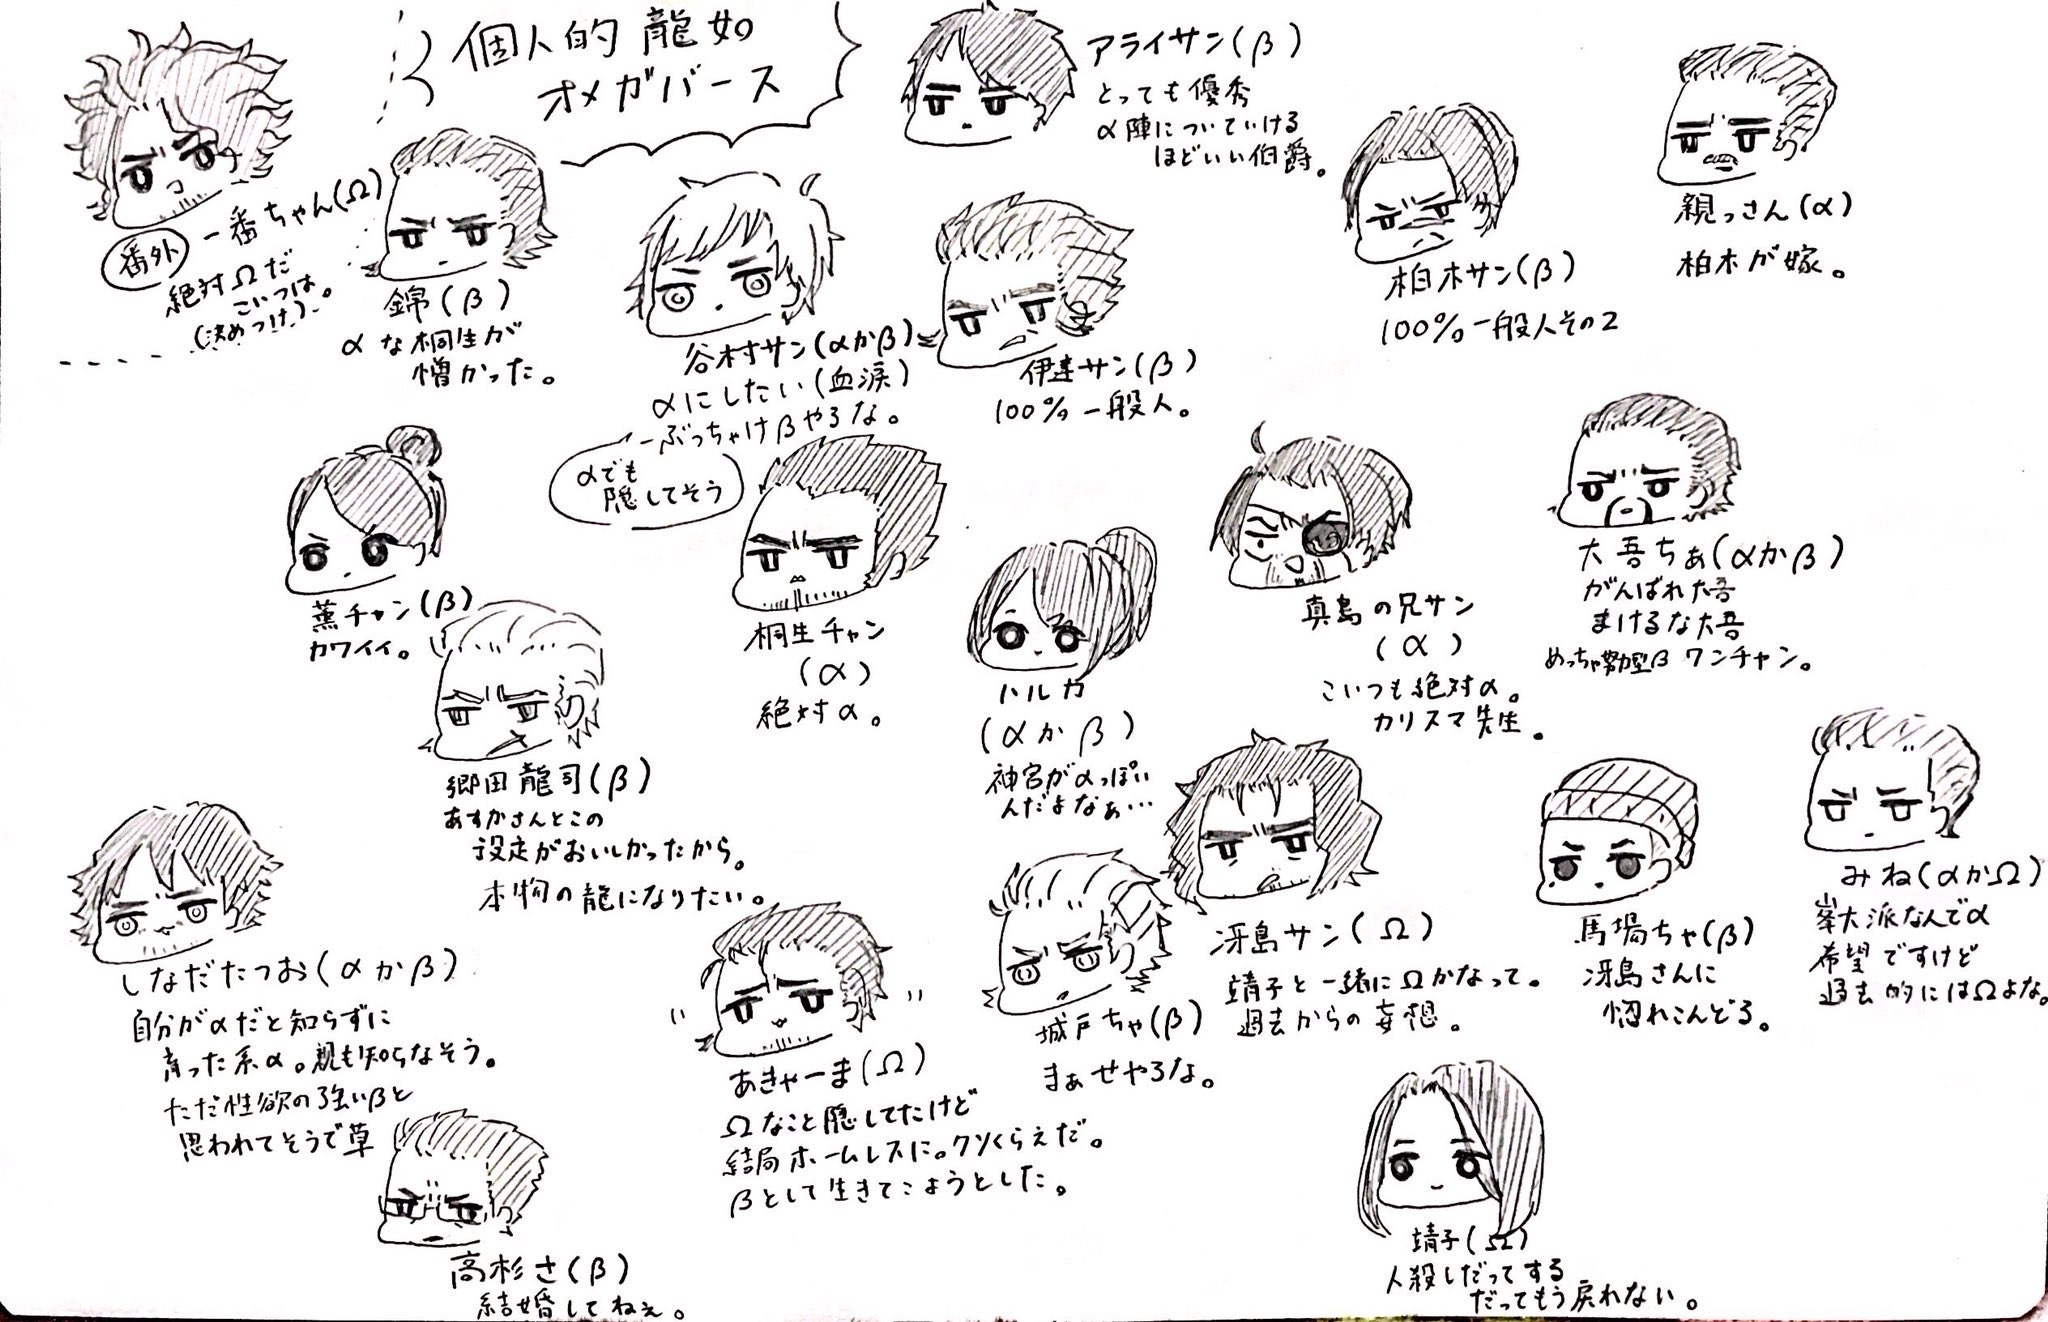 個人的 龍如
オメガバース
番外
一番ちゃん(Ω)
絶対Ωだ
こいつは。
(決めつけ)
錦(β)
αな桐生が
憎かった。
谷村サン(αかβ)
αにしたい(血涙)
ーぶっちゃけβやろな。
αでも
隠してそう
アライサン(β)
とっても優秀
α陣についていける
ほどいい伯爵。
伊達サン(β)
100%一般人。
柏木サン(β)
100%一般人その2
親っさん(α)
柏木が嫁。
薫チャン(β)
カワイイ。
桐生チャン
(α)
絶対α。
ハルカ
(αかβ)
神宮がαっぽい
んだよなぁ…
真島の兄サン
(α)
こいつも絶対α。
カリスマ先生。
大吾ちぁ(αかβ)
がんばれ大吾
まけるな大吾
めっちゃ努力型β ワンチャン。
郷田龍司(β)
あすかさんとこの
設定がおいしかったから。
本物の龍になりたい。
しなだたつお(αかβ)
自分がαだと知らずに
育った系α。親も知らなそう。
ただ性欲の強いβと
思われてそうで草
あきゃーま(Ω)
Ωなこと隠してたけど
結局ホームレスに。クソくらえだ。
βとして生きてこようとした。
城戸ちゃ(β)
まぁせやろな。
冴島サン(Ω)
靖子と一緒にΩかなって。
過去からの妄想。
馬場ちゃ(β)
冴島さんに
惚れこんどる。
みね(αかΩ)
峯大派なんでα
希望ですけど
過去的にはΩよな。
高杉さ(β)
結婚してねぇ。
靖子(Ω)
人殺しだってする
だってもう戻れない。